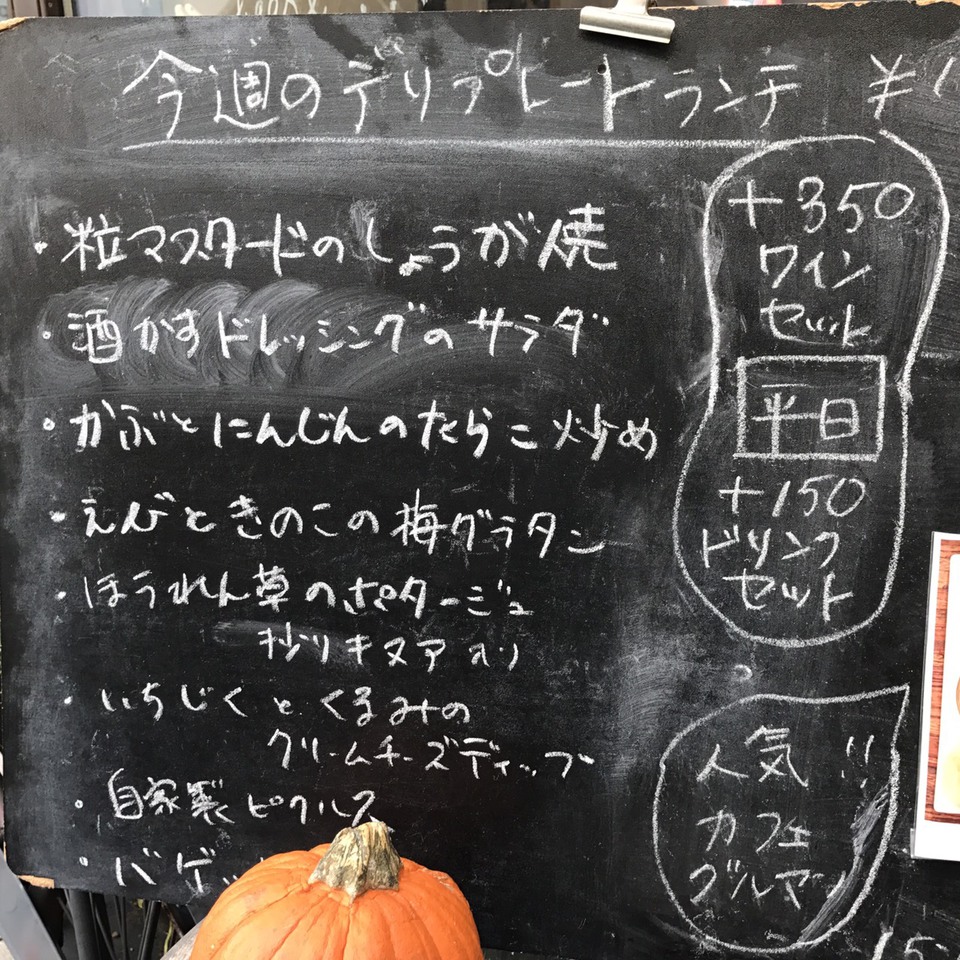 今週のデリプレートランチ ¥1
・粒マスタードのしょうが焼
・酒かすドレッシングのサラダ
・かぶとにんじんのたらこ炒め
・えびときのこの梅グラタン
・ほうれん草のポタージュ
炒りキヌア入り
・いちじくとくるみの
クリームチーズディップ
・自家製ピクルス
・バゲッ
+350
ワイン
セット
平日
+150
ドリンク
セット
人気!!
カフェ
グルマン
15